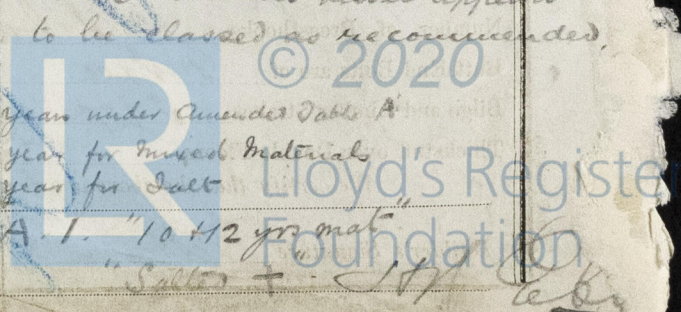 to be classed as recommended.
© 2020
year under Amended Table A
year for Mixed Materials
year for Salt
Lloyd's Register
Foundation
A. 1. "10 + 2 yrs mat"
"Salted" +